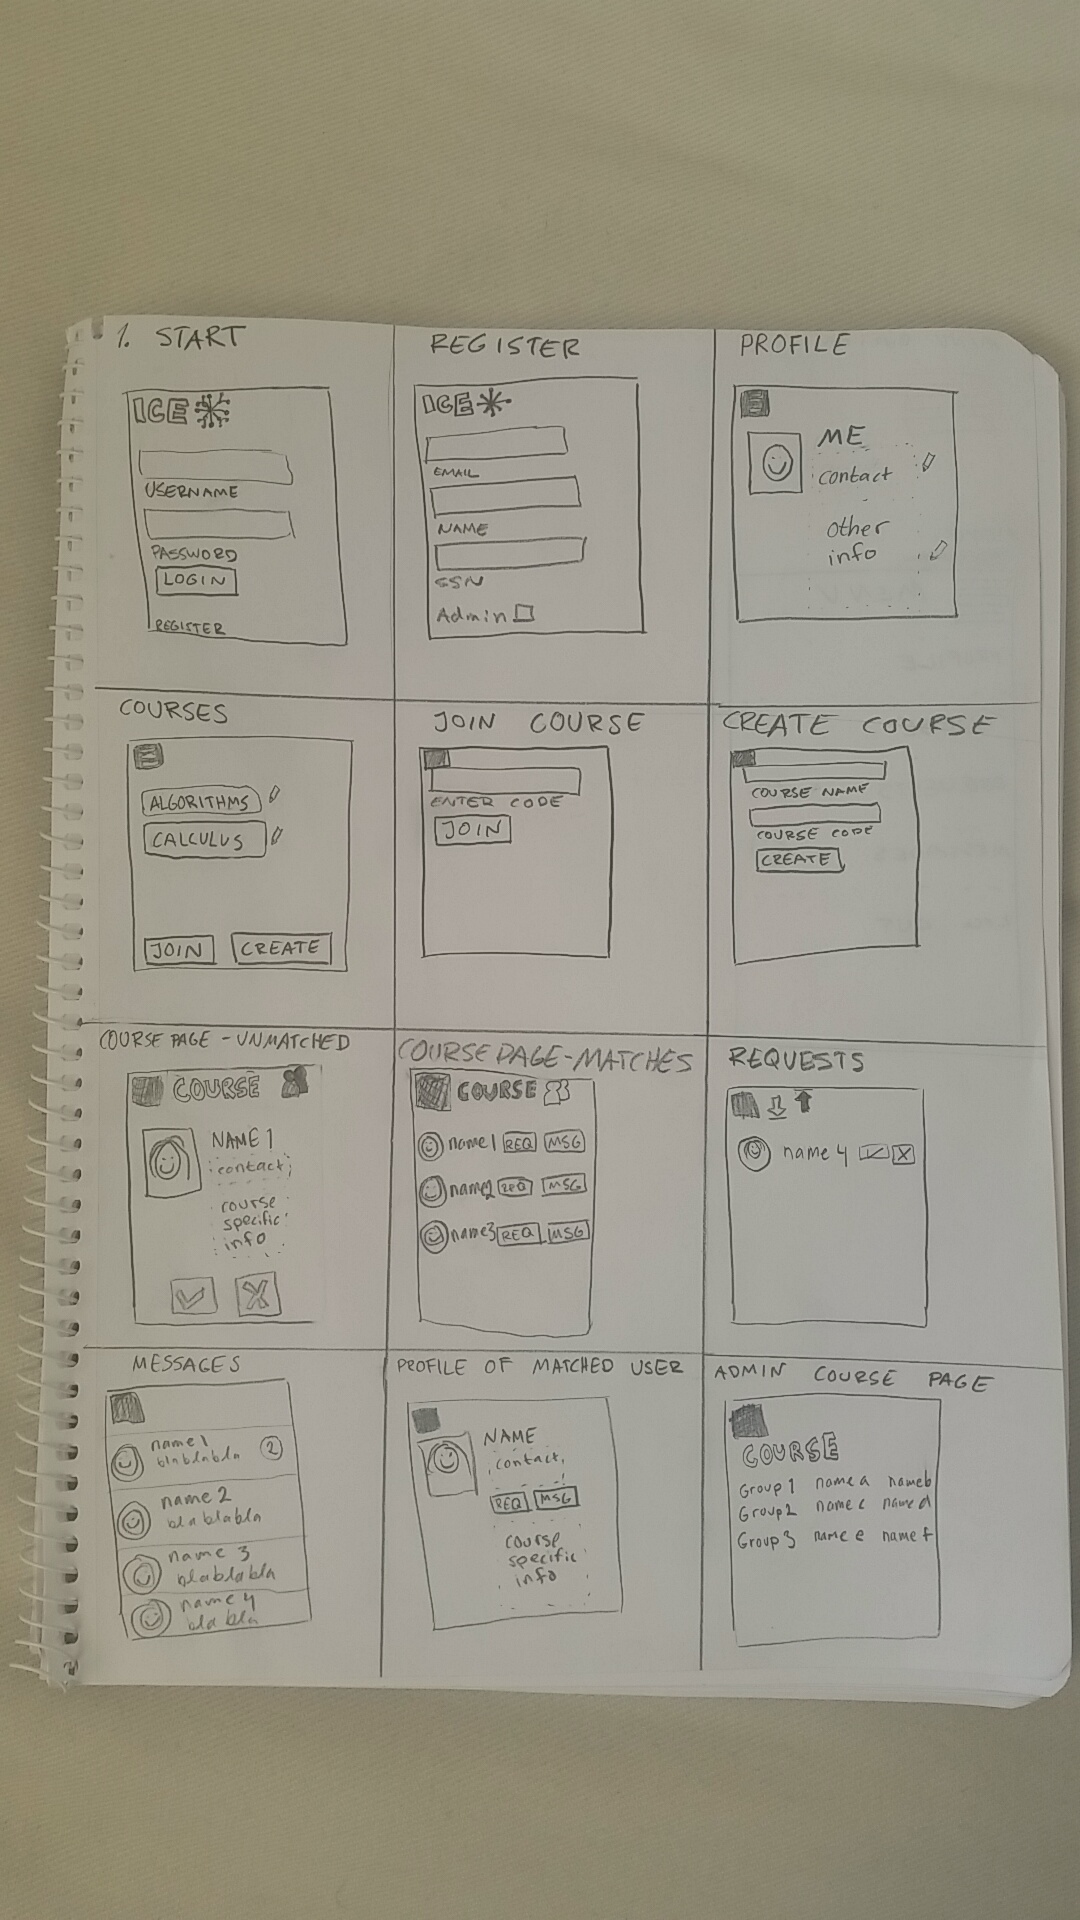 1. START
ICE
USERNAME
PASSWORD
LOGIN
REGISTER
REGISTER
ICE
EMAIL
NAME
SSN
Admin
PROFILE
ME
contact
other
info
COURSES
ALGORITHMS
CALCULUS
JOIN CREATE
JOIN COURSE
ENTER CODE
JOIN
CREATE COURSE
COURSE NAME
COURSE CODE
CREATE
COURSE PAGE - UNMATCHED
COURSE
NAME 1
contact
course
specific
info
COURSE PAGE - MATCHES
COURSE
name1 REQ MSG
name2 REQ MSG
name3 REQ MSG
REQUESTS
name 4
MESSAGES
name1
blablabla 2
name 2
blablabla
name 3
blablabla
name 4
bla bla
PROFILE OF MATCHED USER
NAME
contact
REQ MSG
course
specific
info
ADMIN COURSE PAGE
COURSE
Group 1 name a name b
Group 2 name c name d
Group 3 name e name f